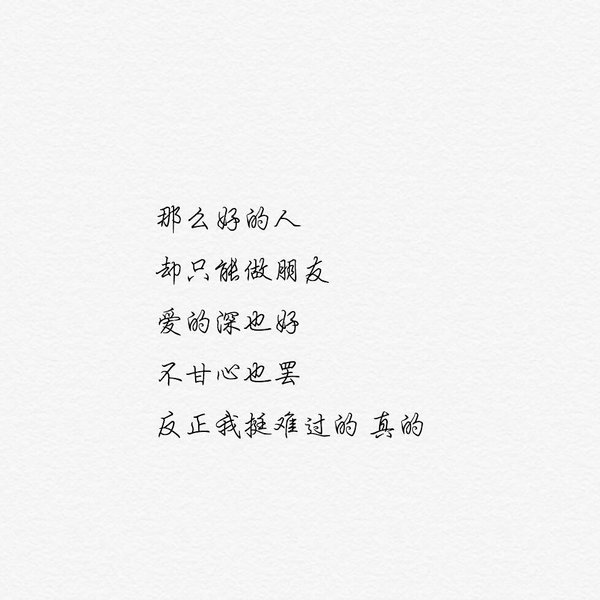 那么好的人
却只能做朋友
爱的深也好
不甘心也罢
反正我挺难过的 真的